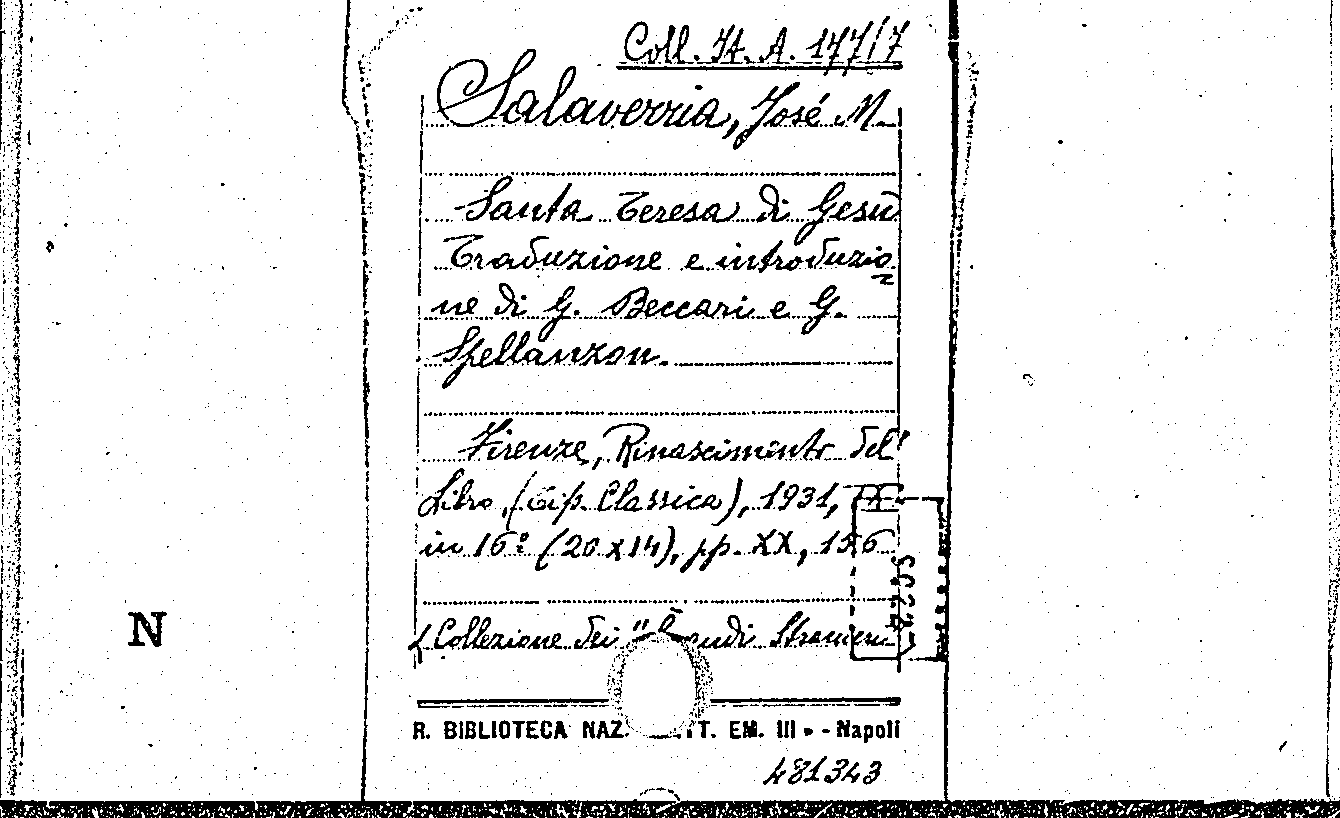 Coll. It. A. 177/7
Salaverria, José M.
Santa Teresa di Gesù
Traduzione e introduzio
ne di G. Beccari e G.
Spellanzon.
Firenze, Rinascimento del
Libro, (Tip. Classica), 1931, IX
in 16° (20x14), pp. XX, 156
(Collezione dei "Grandi Stranieri
N
R. BIBLIOTECA NAZ. VITT. EM. III - Napoli
481343